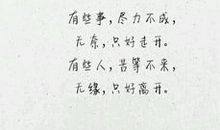 有些事，尽力不成，
无奈，只好走开。
有些人，苦等不来，
无缘，只好离开。